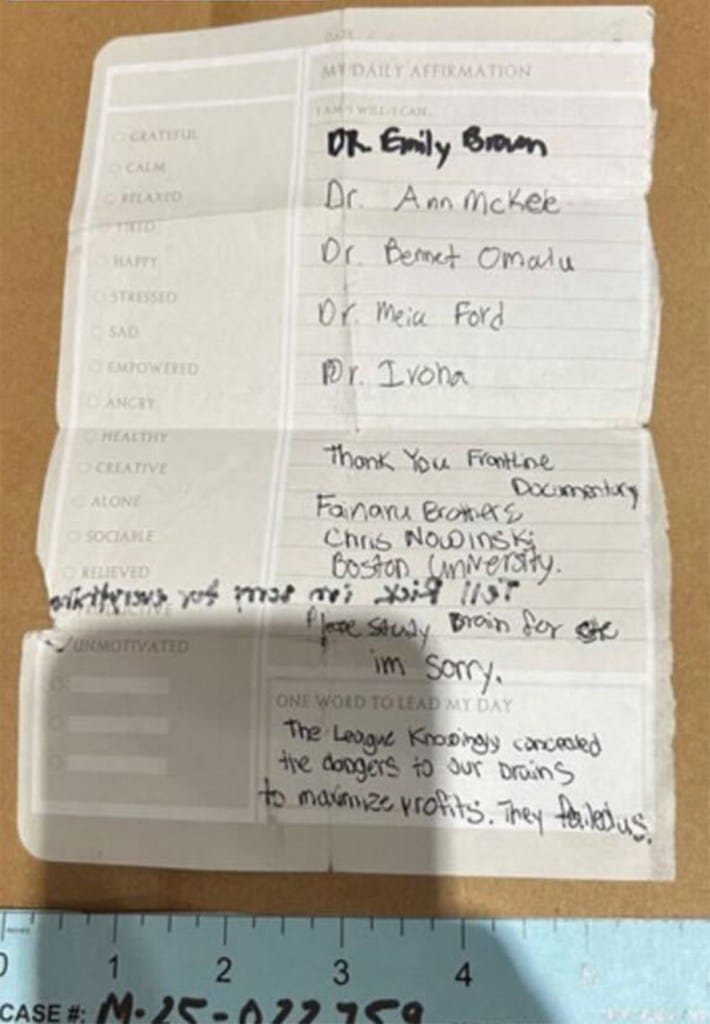 DATE
MY DAILY AFFIRMATION
I AM I WILL I CAN
GRATEFUL
CALM
RELAXED
TIRED
HAPPY
STRESSED
SAD
EMPOWERED
ANGRY
HEALTHY
CREATIVE
ALONE
SOCIABLE
RELIEVED
UNMOTIVATED
DR. Emily Brown
Dr. Ann McKee
Dr. Bennet Omalu
Dr. Ford
Dr. Ivona
Thank You Frontline
Documentary
Fainaru Brothers
Chris Nowinski
Boston University.
Tell Rick I'm sorry for everything
Please Study Brain for
im sorry.
ONE WORD TO LEAD MY DAY
The League Knowingly concealed
the dangers to our brains
to maximize profits. They failed us.
0 1 2 3 4
CASE #: M-25-022759